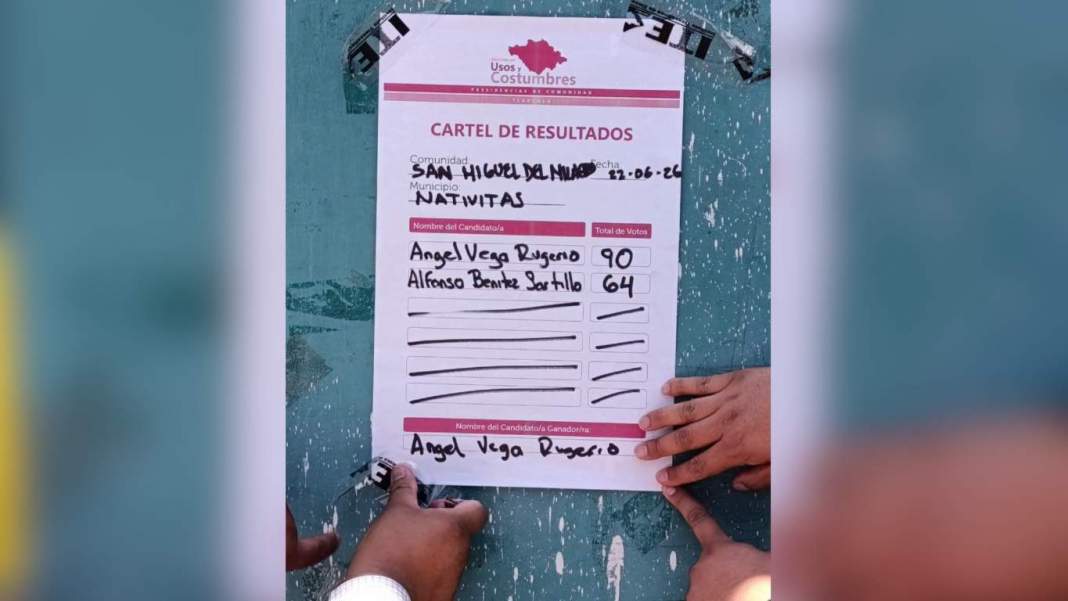 ITE
ITE
Usos y
Costumbres
PRESIDENCIAS DE COMUNIDAD
TLAXCALA
CARTEL DE RESULTADOS
Comunidad: Fecha
SAN MIGUEL DEL MILAGRO 22-06-26
Municipio:
NATIVITAS
Nombre del Candidato/a Total de Votos
Angel Vega Rugerio 90
Alfonso Benitez Sartillo 64
Nombre del Candidato/a Ganador/ra:
Angel Vega Rugerio